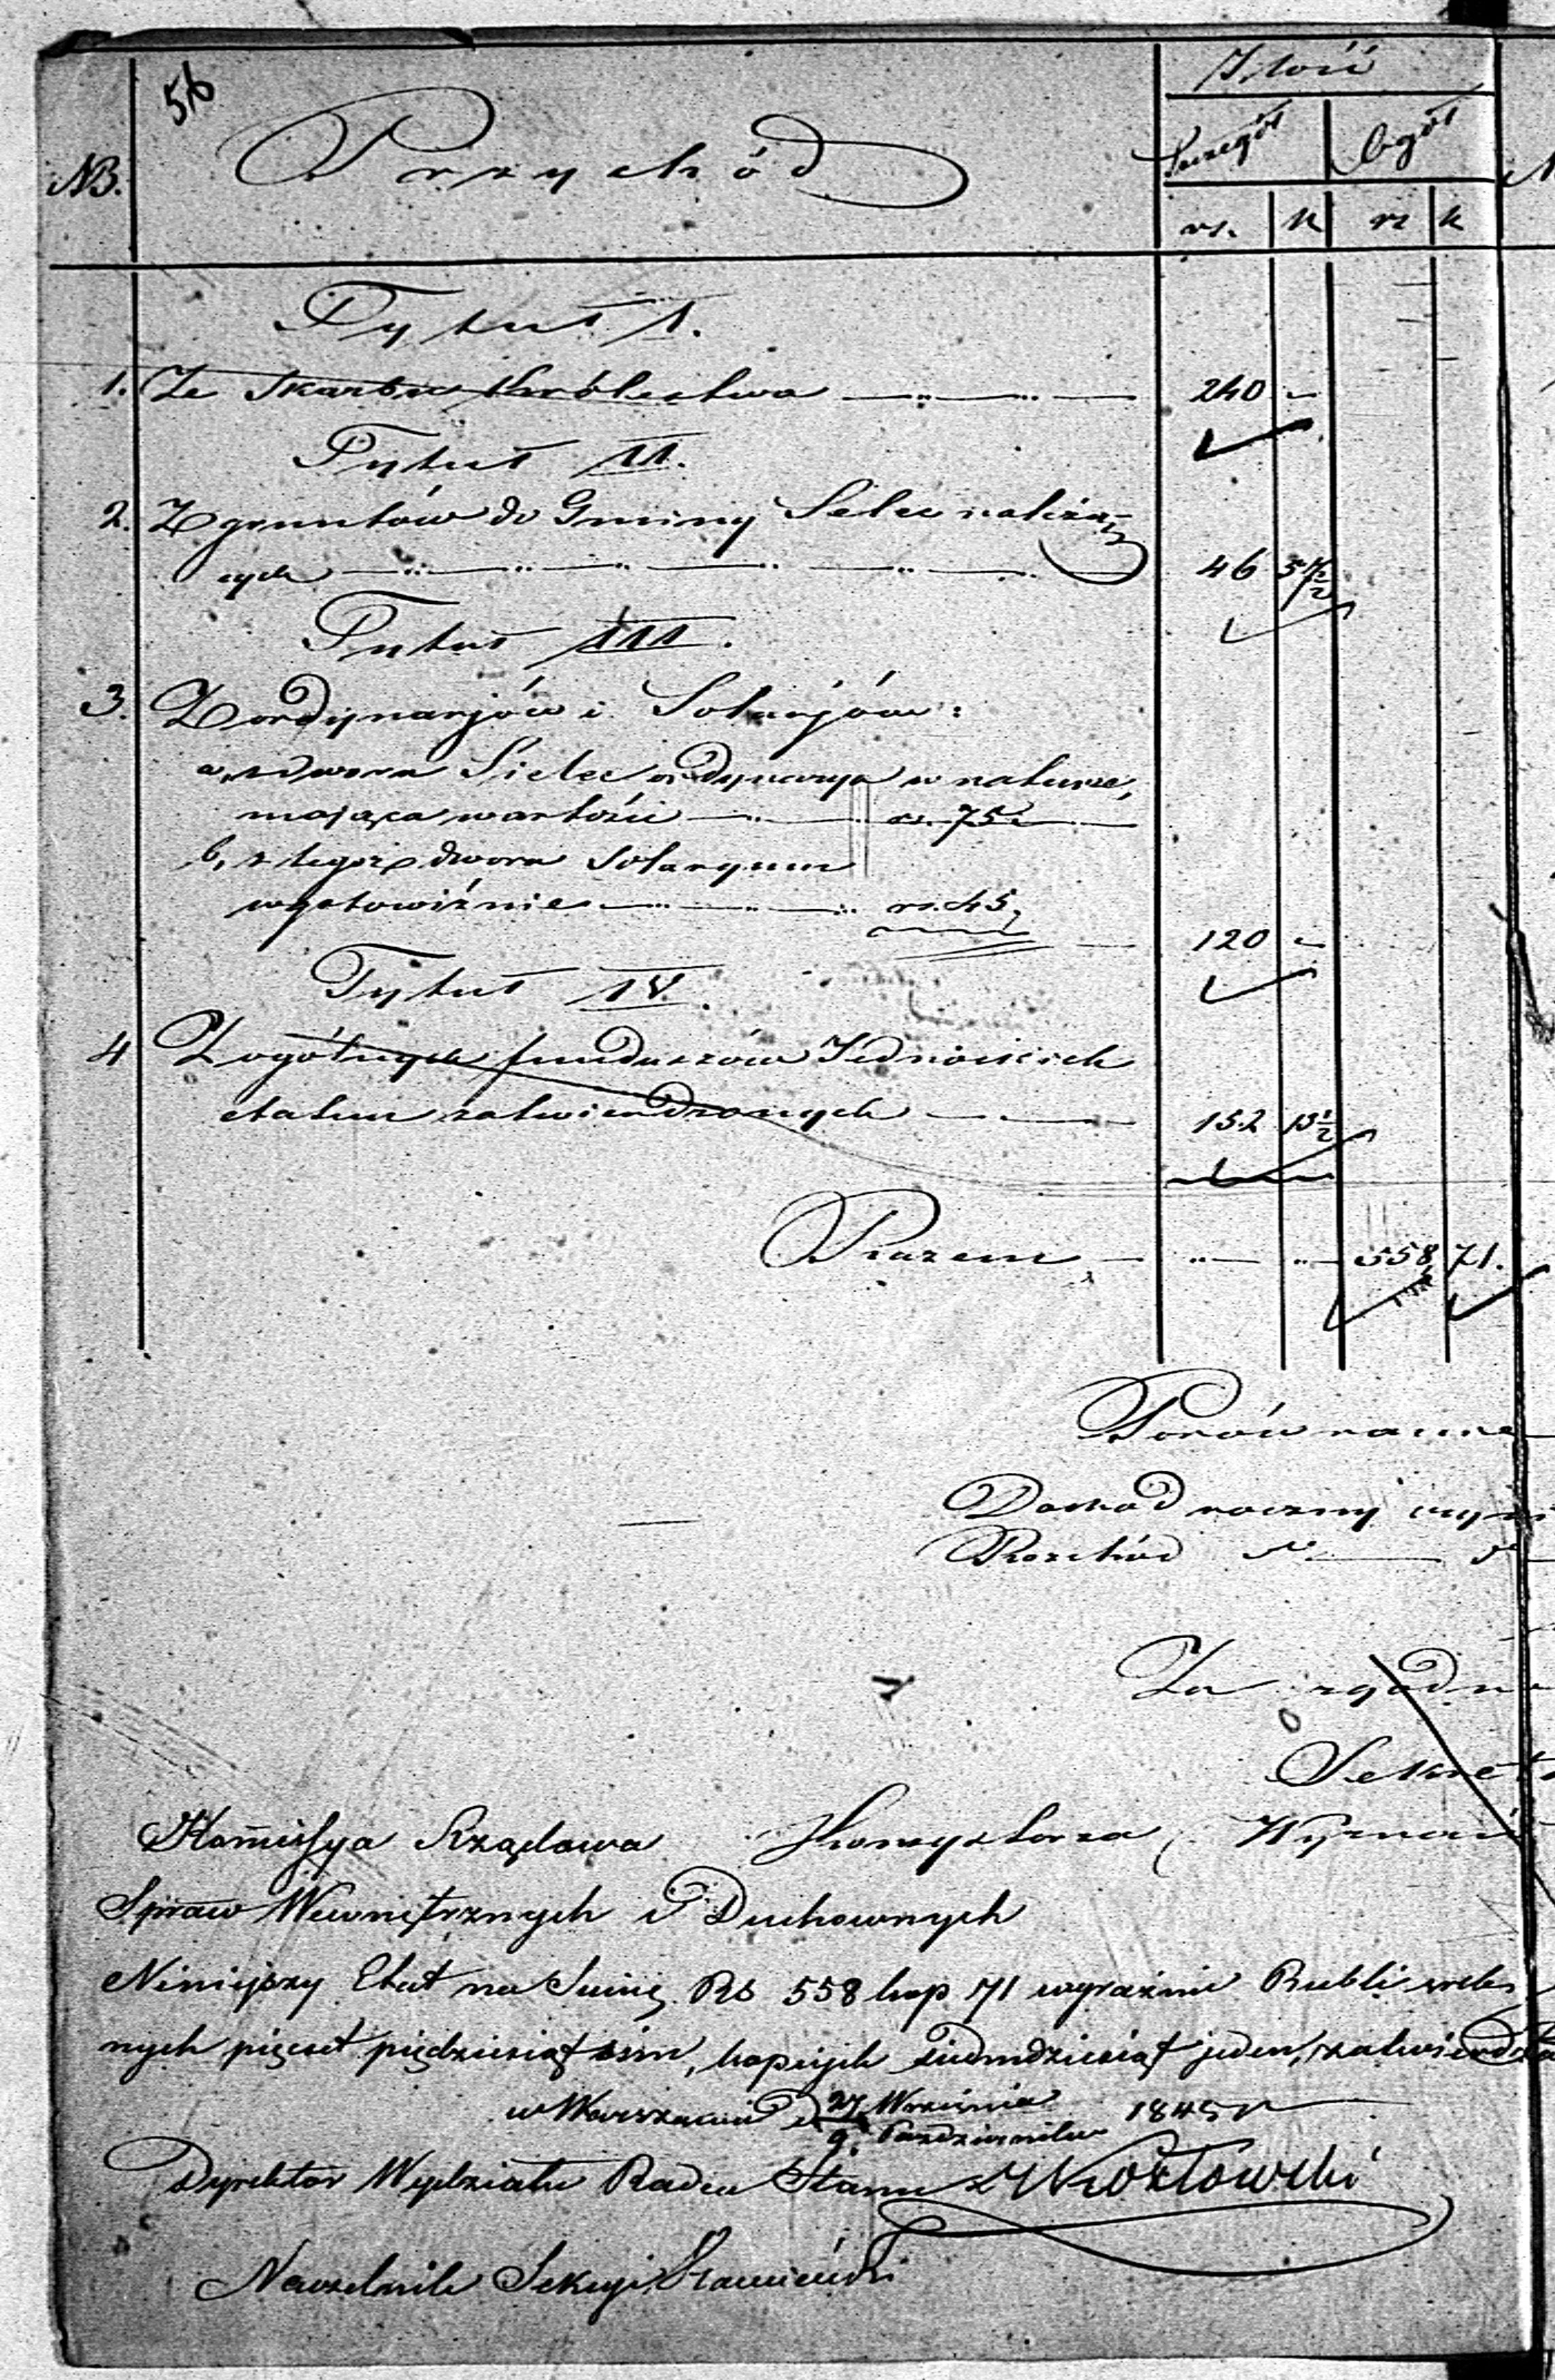 56
Ilość
NB. Przychód Szczegół Ogół
rs. k rs k
Tytuł I.
1. Ze Skarbu Królestwa 240 -
Tytuł II.
2. Z gruntów do Gminy Selec należą-
cych 46 57½
Tytuł III.
3. Z ordynarjów i Solarjów:
a, z dworu Sielec ordynarya w naturze,
mająca wartości rs. 75
b, z tegoż dworu Solaryum
w gotowiźnie rs. 45,
120 -
Tytuł IV.
4 Z ogólnych funduszów Jedności ich
etatem zatwierdzonych 152 13½
Razem 558 71.
Porównanie
Dochód roczny wyn
Rozchód
Za zgodn
Sekret
Kommissya Rządowa
Spraw Wewnętrznych i Duchownych
Niniejszy Etat na Summę Rs 558 kop 71 wyraźnie Rubli sreb
nych pięćset pięćdziesiąt ośm, kopiejek siedmdziesiąt jeden, zatwierdza
w Warszawie d 27 Września 1845 r
9. Października
Dyrektor Wydziału Radca Stanu Kozłowski
Naczelnik Sekcyi